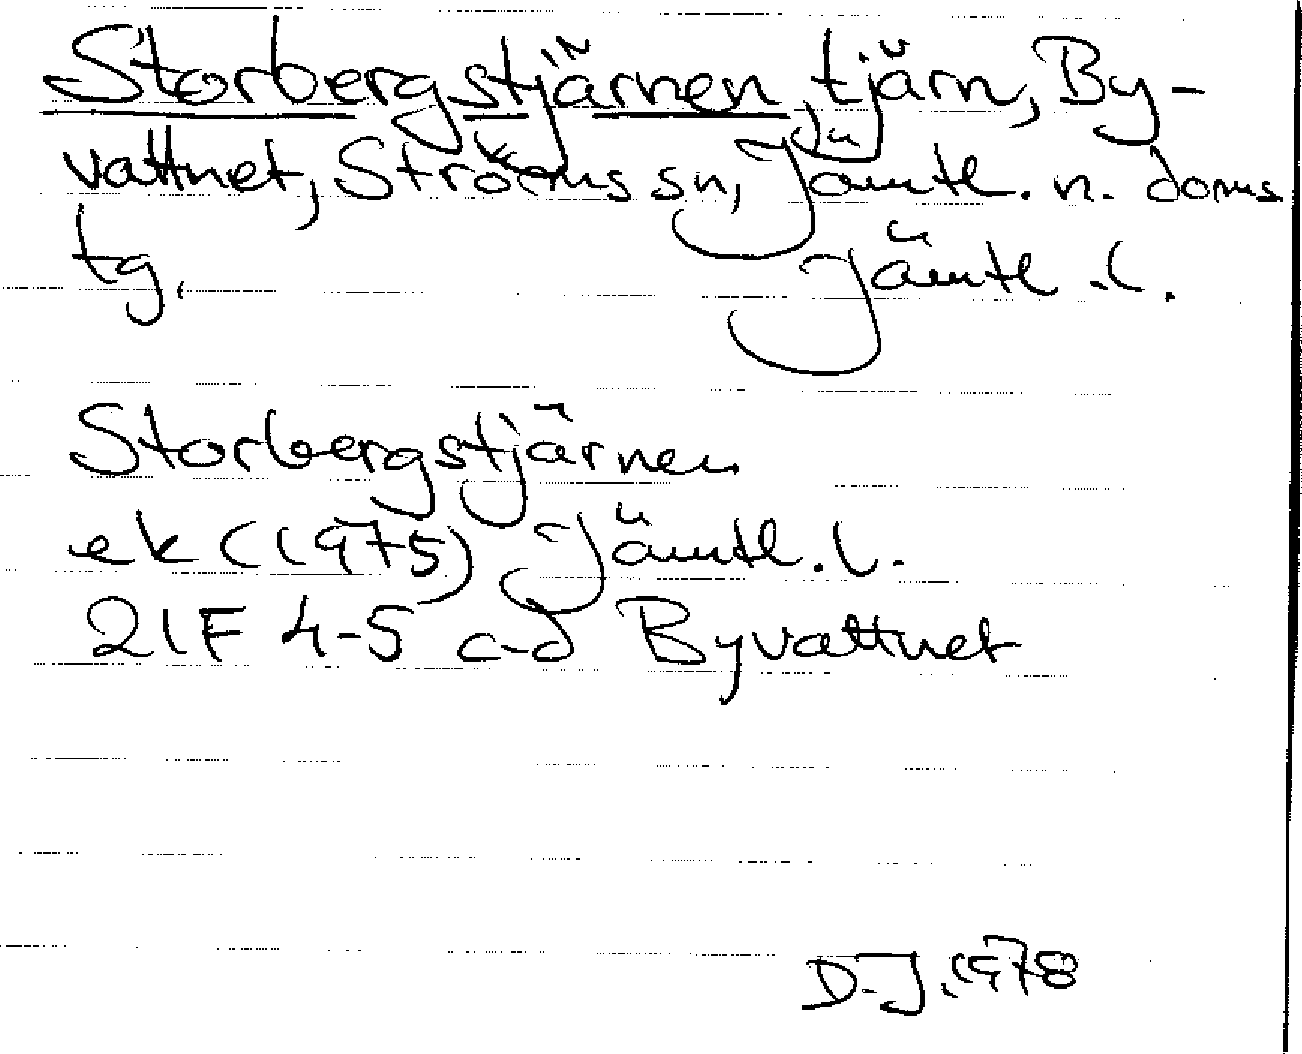 Storbergstjärnen, tjärn, By-
vattnet, Ströms sn, Jämtl. n. doms
tg, Jämtl. l.
Storbergstjärnen
ek (1975) Jämtl. l.
21F 4-5 c-d Byvattnet
D.J. 1978